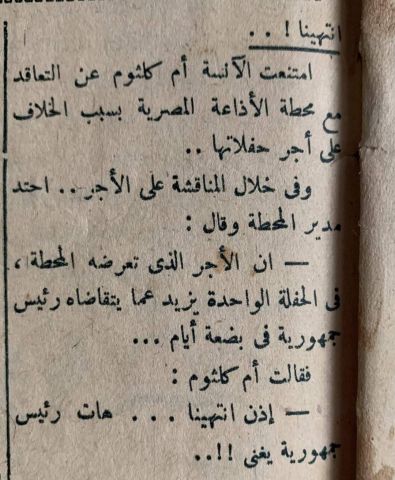 انتهينا ! . .
امتنعت الآنسة أم كلثوم عن التعاقد
مع محطة الأذاعة المصرية بسبب الخلاف
على أجر حفلاتها ..
وفى خلال المناقشة على الأجر .. احتد
مدير المحطة وقال :
— ان الأجر الذى تعرضه المحطة ،
فى الحفلة الواحدة يزيد عما يتقاضاه رئيس
جمهورية فى بضعة أيام ...
فقالت أم كلثوم :
— إذن انتهينا . . . هات رئيس
جمهورية يغنى !!..